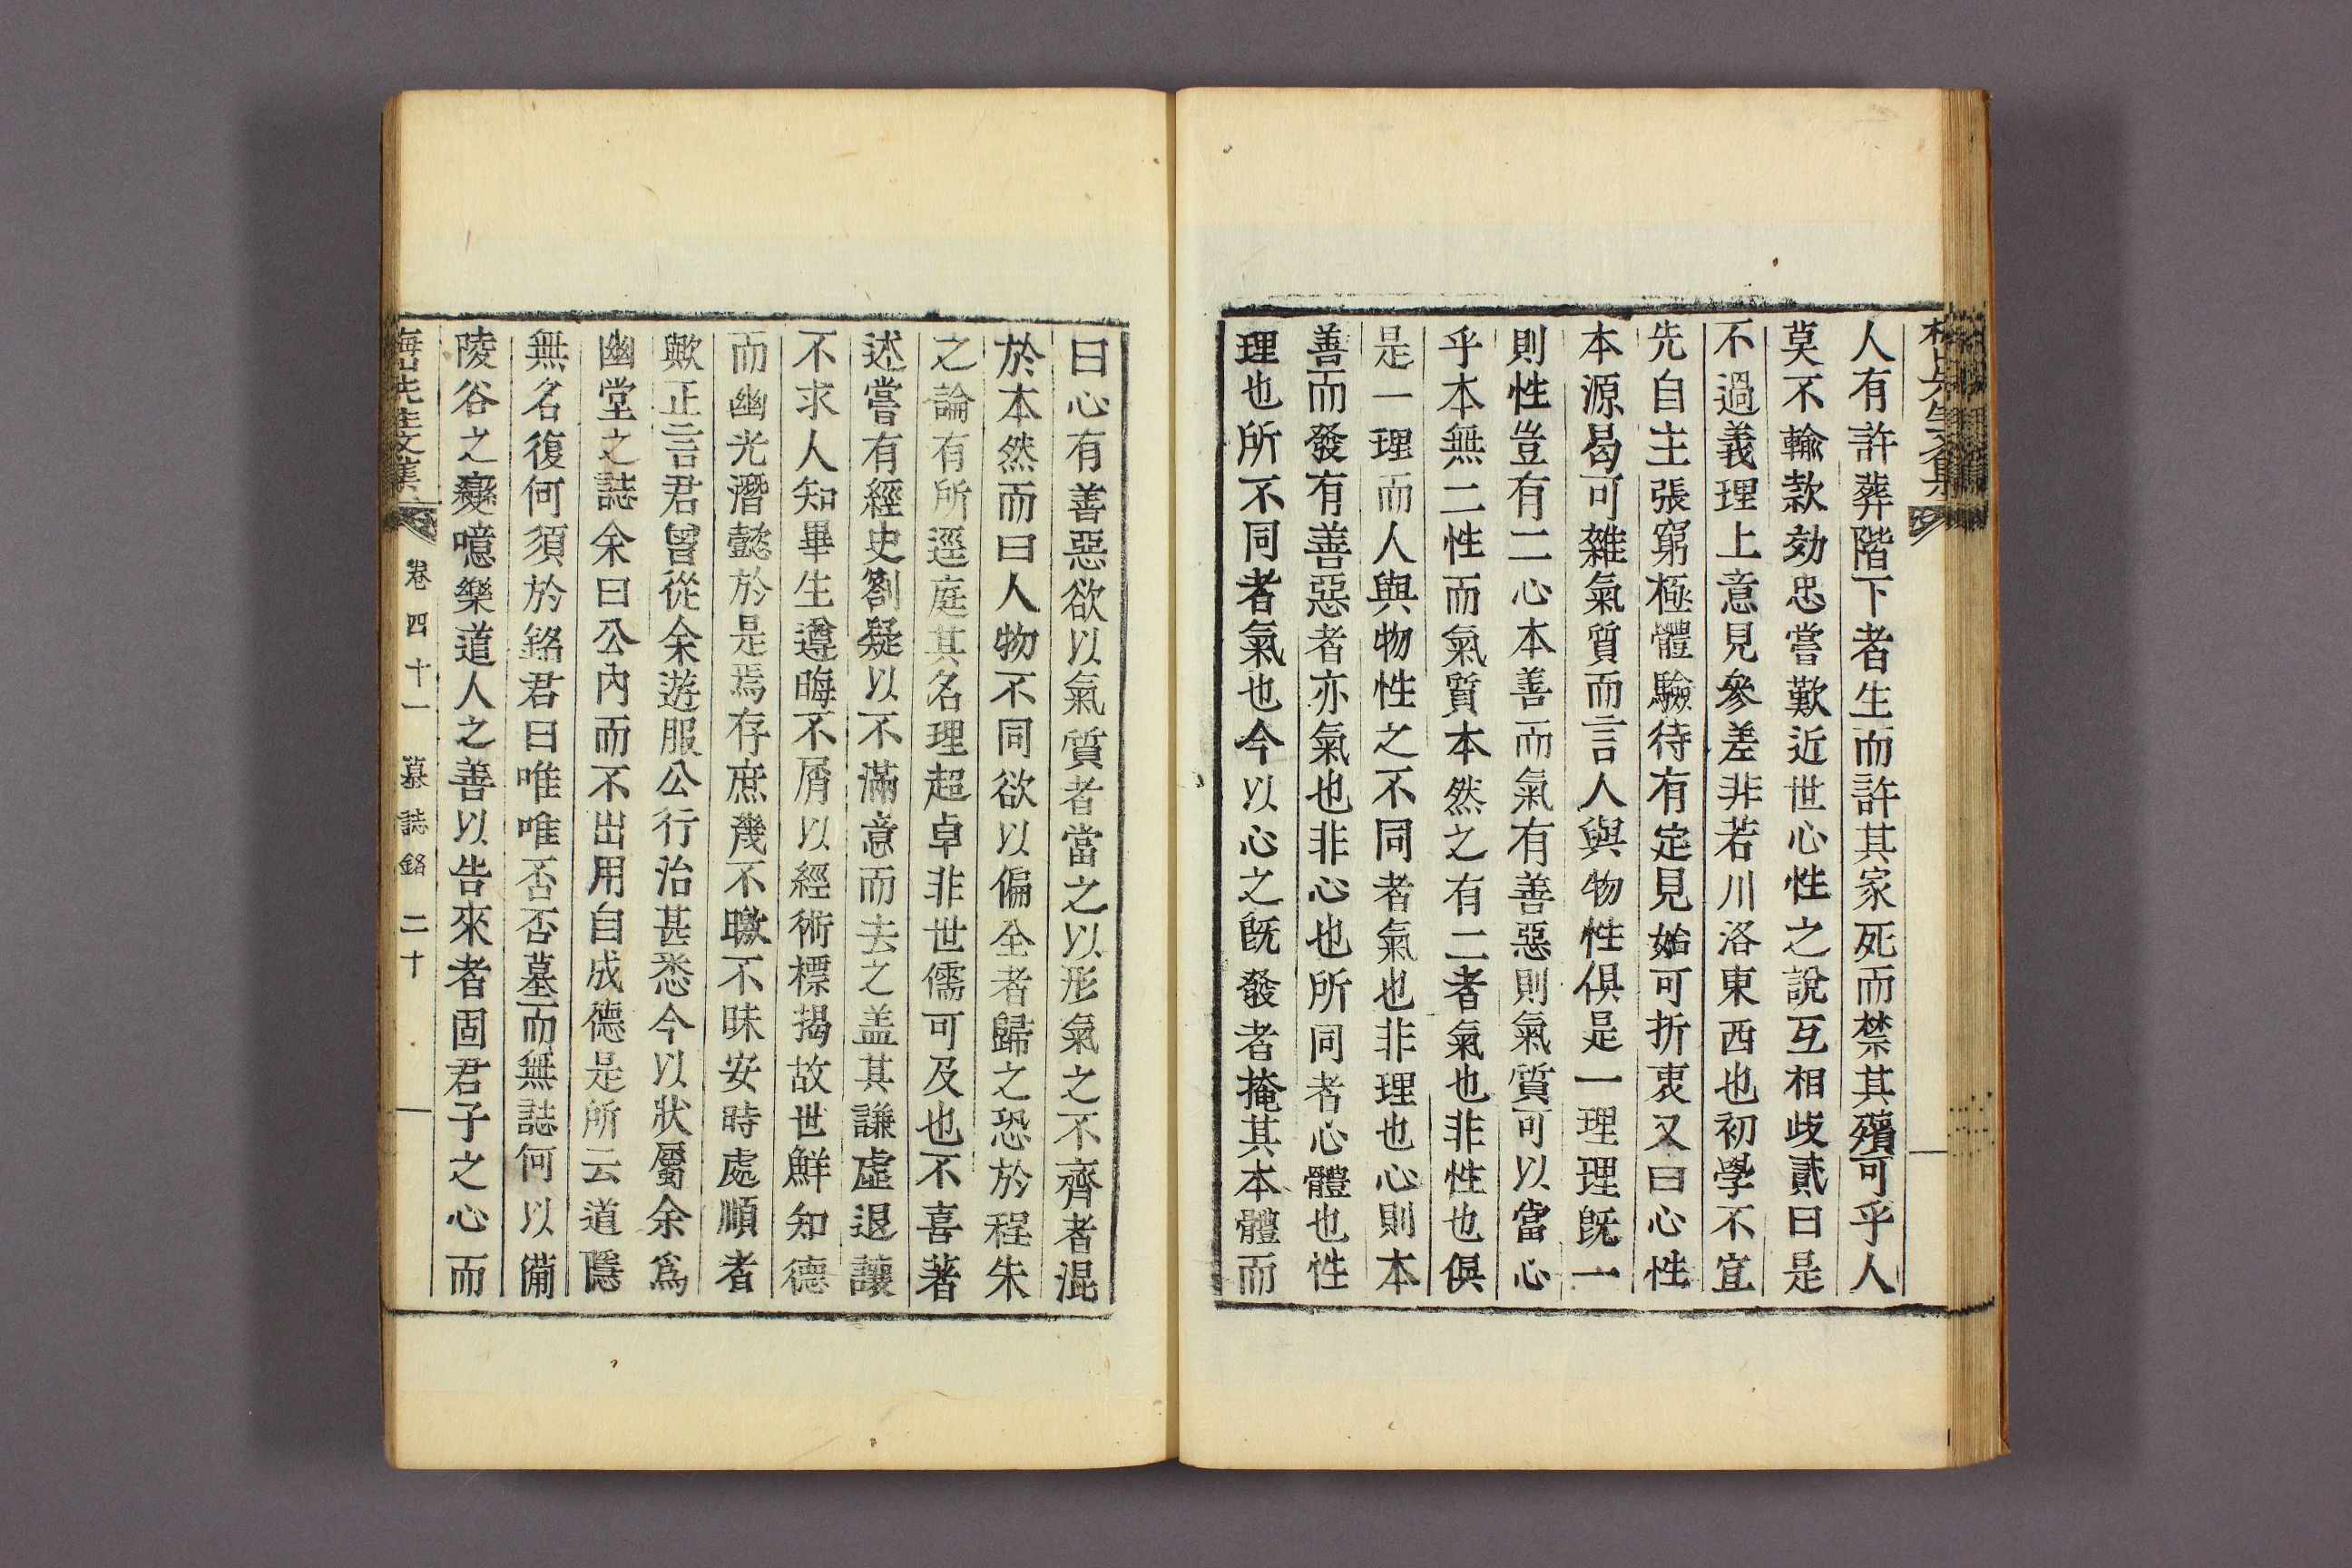 人有許葬階下者生而許其家死而禁其殯可乎人
莫不輸款効忠嘗歎近世心性之說互相歧貳曰是
不過義理上意見參差非若川洛東西也初學不宜
先自主張窮極體驗待有定見始可折衷又曰心性
本源曷可雜氣質而言人與物性俱是一理理旣一
則性豈有二心本善而氣有善惡則氣質可以當心
乎本無二性而氣質本然之有二者氣也非性也俱
是一理而人與物性之不同者氣也非理也心則本
善而發有善惡者亦氣也非心也所同者心體也性
理也所不同者氣也今以心之旣發者掩其本體而
曰心有善惡欲以氣質者當之以形氣之不齊者混
於本然而曰人物不同欲以偏全者歸之恐於程朱
之論有所逕庭其名理超卓非世儒可及也不喜著
述嘗有經史劄疑以不滿意而去之盖其謙虛退讓
不求人知畢生遵晦不屑以經術標揭故世鮮知德
而幽光潛懿於是焉存庶幾不曒不昧安時處順者
歟正言君曾從余遊服公行治甚悉今以狀屬余爲
幽堂之誌余曰公內而不出用自成德是所云道隱
無名復何須於銘君曰唯唯否否墓而無誌何以備
陵谷之變噫樂道人之善以告來者固君子之心而
梅山先生文集 卷四十一 墓誌銘 二十